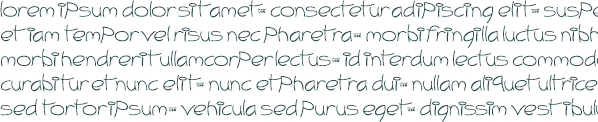 lorem ipsum dolor sit amet consectetur adipiscing elit susp
et iam tempor vel risus nec pharetra morbi fringilla luctus nibh
morbi hendrerit ullamcorper lectus id interdum lectus commod
curabitur et nunc elit nunc et pharetra dui nullam aliquet ultrice
sed tortor ipsum vehicula sed purus eget dignissim vestibulu